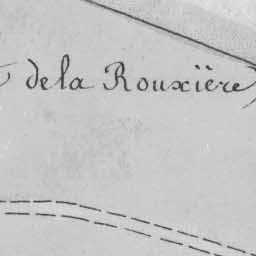 de la Rouxière)